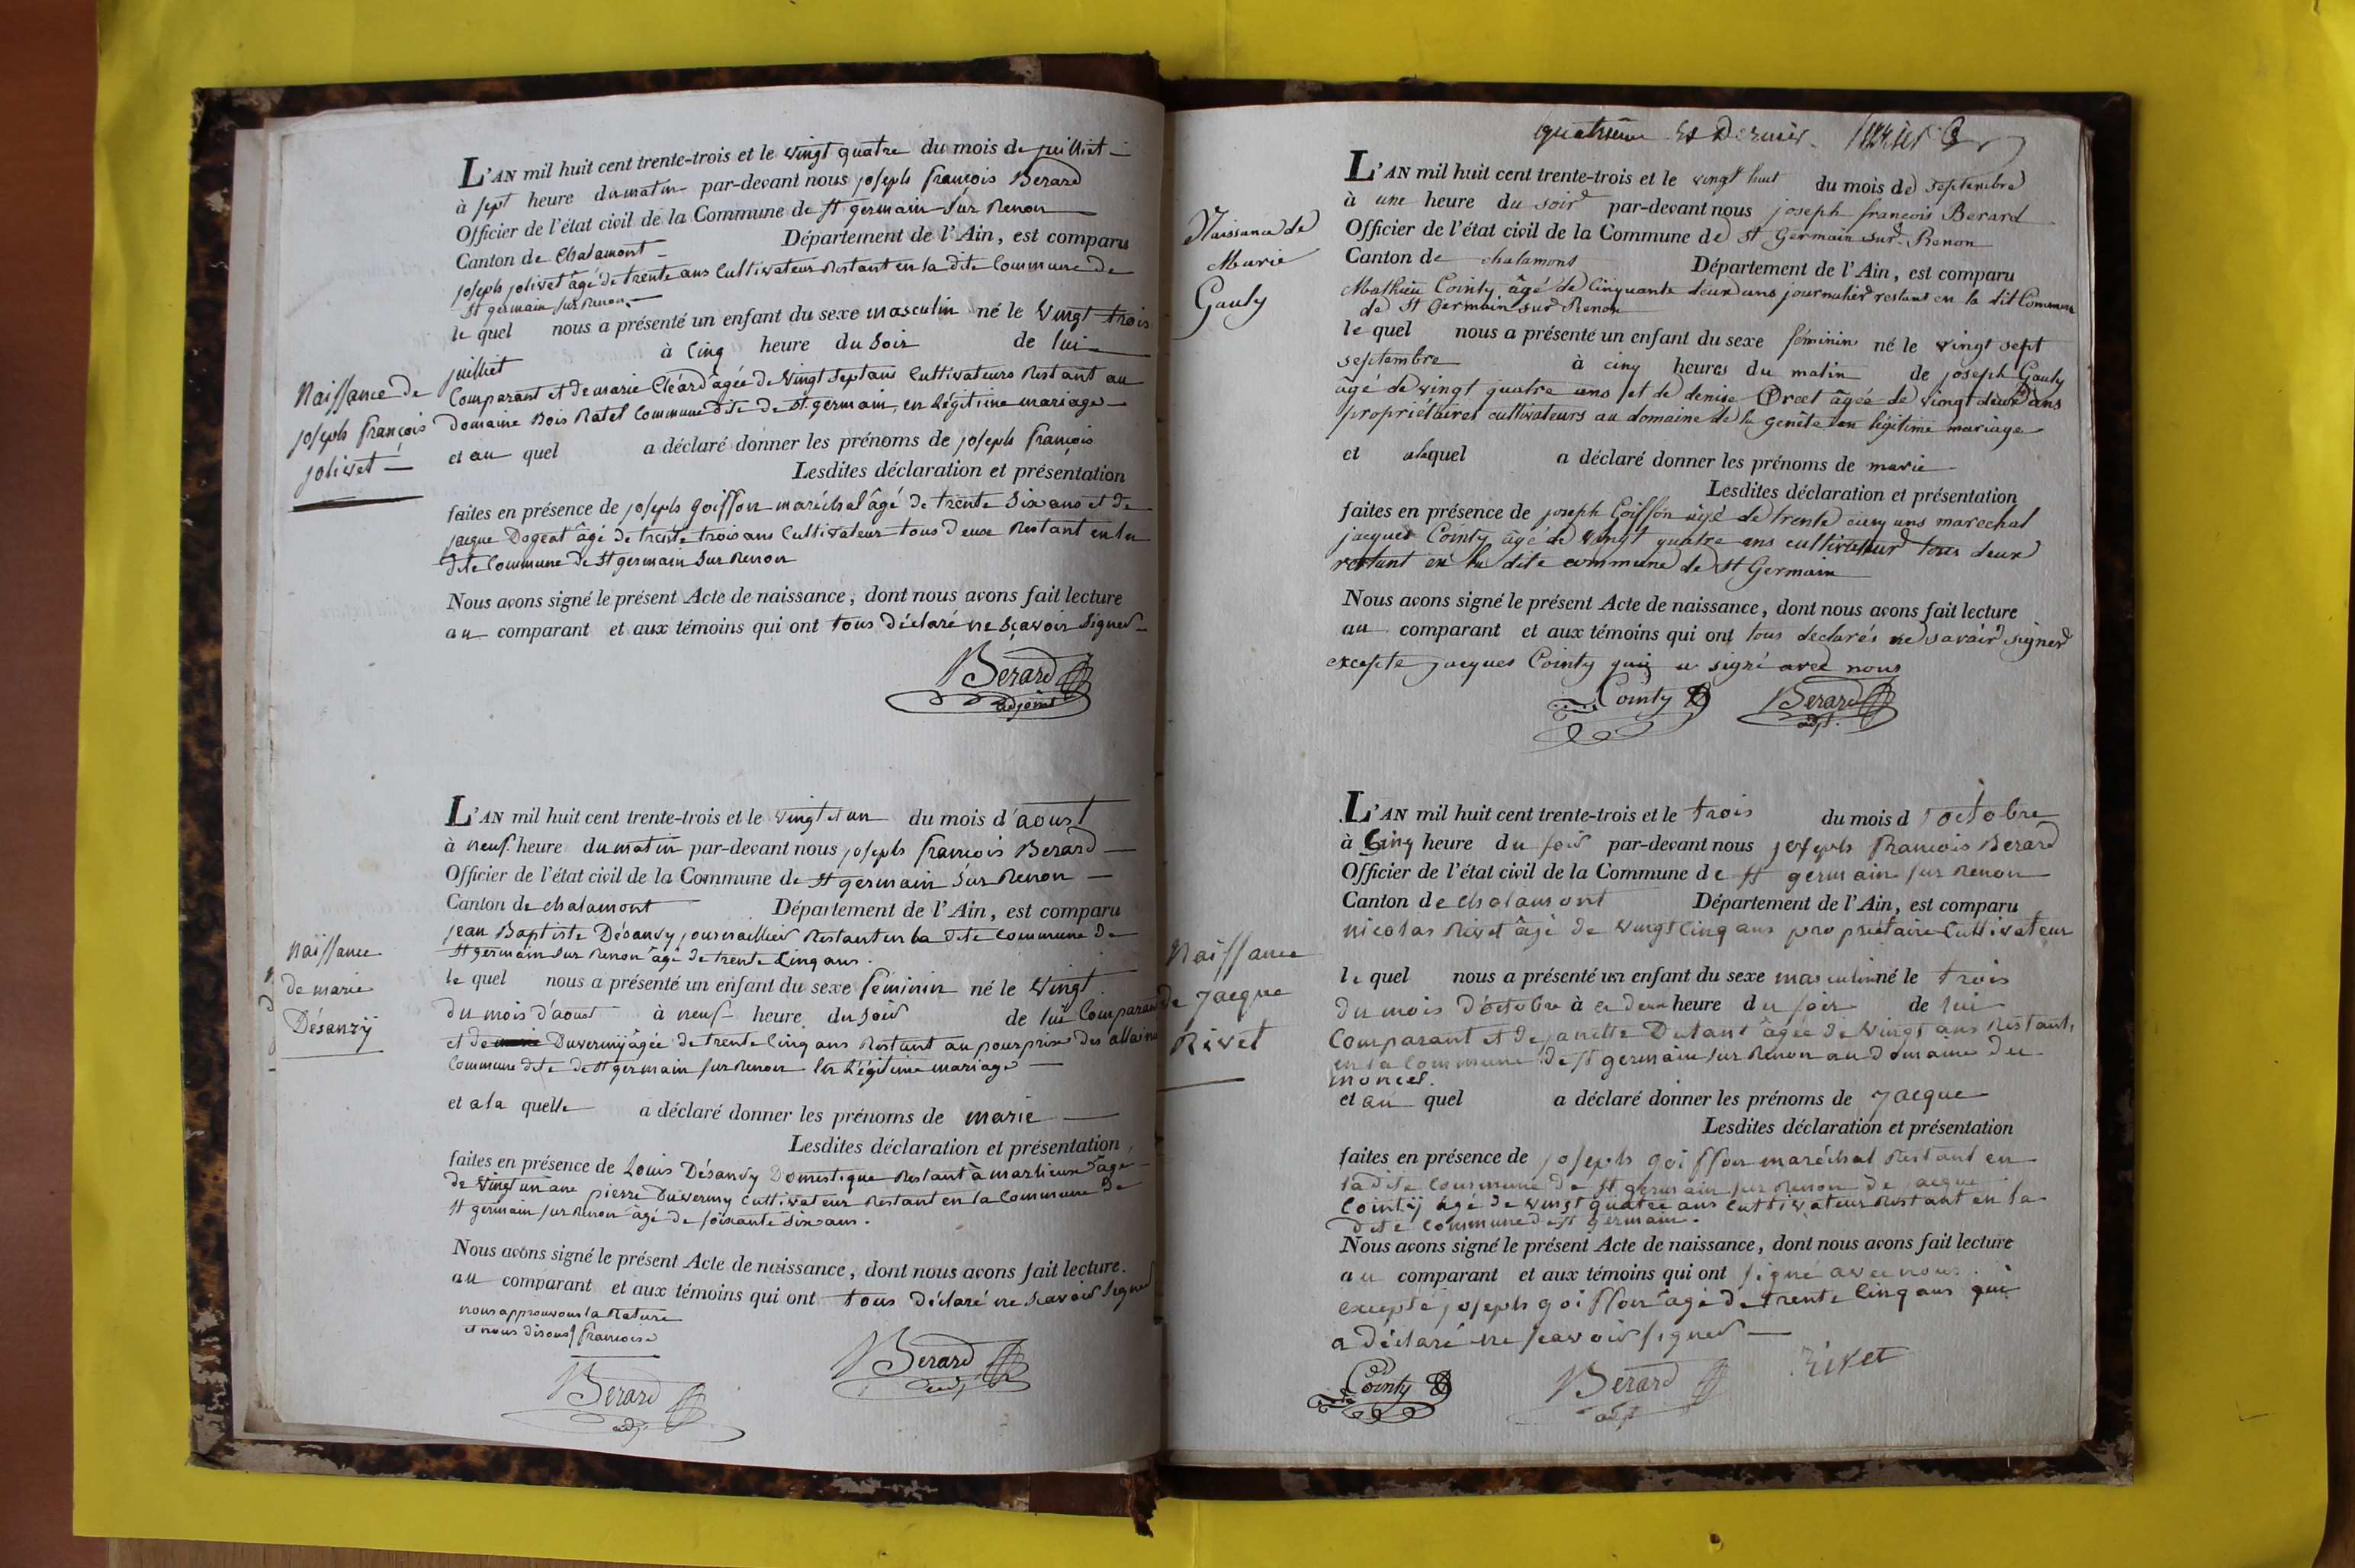 L'AN mil huit cent trente-trois et le vingt quatre du mois de juilliet
à sept heure du matin par-devant nous joseph françois Berard
Officier de l'état civil de la Commune de st germain sur Renon
Canton de Chalamont Département de l'Ain, est comparu
joseph jolivet âgé de trente ans Cultivateur Restant en la dite Commune de
st germain sur Renon
le quel nous a présenté un enfant du sexe masculin né le vingt trois
juilliet à cinq heure du Soir de lui
Comparant et de marie Cléard âgée de vingt Sept ans Cultivateurs Restant au
Domaine Bois Ratel Commune dite de st germain, en Légitime mariage
et au quel a déclaré donner les prénoms de joseph françois
Lesdites déclaration et présentation
faites en présence de joseph goiffon maréchal âgé de trente Six ans et de
jacque Dogeat âgé de trente trois ans Cultivateur tous deux Restant en la
dite Commune de st germain Sur Renon
Nous avons signé le présent Acte de naissance, dont nous avons fait lecture
au comparant et aux témoins qui ont tous Déclaré ne Sçavoir Signer
Berard
adjoint
Naissance de
joseph françois
jolivet
L'AN mil huit cent trente-trois et le vingt et un du mois d'aoust
à neuf heure du matin par-devant nous joseph françois Berard
Officier de l'état civil de la Commune de st germain Sur Renon
Canton de chalamont Département de l'Ain, est comparu
jean Baptiste Désanvy journaillier Restant en la dite Commune de
st germain sur Renon âgé de trente Cinq ans.
le quel nous a présenté un enfant du sexe féminin né le vingt
du mois d'aoust à neuf heure du Soir de lui Comparant
et de marie Duvernij âgée de trente Cinq ans Restant au pourprix des
Commune dite de st germain sur Renon En Légitime mariage
et a la quelle a déclaré donner les prénoms de marie
Lesdites déclaration et présentation
faites en présence de Louis Désanvy Domestique Restant à marlieux âgé
de vingt un ans pierre Duverny Cultivateur Restant en la Commune de
st germain sur Renon âgé de soixante Six ans.
Nous avons signé le présent Acte de naissance, dont nous avons fait lecture.
au comparant et aux témoins qui ont tous Déclaré ne Scavoir Signer
nous approuvons la Rature
et nous disons françoise
Berard
adj
Berard
adj
naissance
de marie
Désanvij
quatrième et Dernier
L'AN mil huit cent trente-trois et le vingt huit du mois de septembre
à une heure du soir par-devant nous joseph françois Berard
Officier de l'état civil de la Commune de st Germain sur Renon
Canton de chalamont Département de l'Ain, est comparu
Mathieu Cointy âgé de cinquante deux ans journalier restant en la dit Commune
de St Germain sur Renon
le quel nous a présenté un enfant du sexe féminin né le vingt sept
septembre à cinq heures du matin de joseph Gauly
âgé de vingt quatre ans et de denise âgée de vingt deux ans
propriétaires cultivateurs au domaine de la genête en légitime mariage
et alaquel a déclaré donner les prénoms de marie
Lesdites déclaration et présentation
faites en présence de joseph Goiffon âgé de trente cinq ans marechal
jacques Cointy âgé de vingt quatre ans cultivateur tous deux
restant en la dite commune de St Germain
Nous avons signé le présent Acte de naissance, dont nous avons fait lecture
au comparant et aux témoins qui ont tous declarés ne savoir signer
excepte jacques Cointy qui a signé avec nous
Cointy Berard
adjt.
Naissance de
Marie
Gauly
L'AN mil huit cent trente-trois et le trois du mois d octobre
à Cinq heure du soir par-devant nous joseph francois Berard
Officier de l'état civil de la Commune de st germain sur Renon
Canton de chalamont Département de l'Ain, est comparu
nicolas Rivet âgé de vingt Cinq ans propriétaire Cultivateur
le quel nous a présenté un enfant du sexe masculin né le trois
du mois d'octobre à deux heure du soir de lui
Comparant et de janette Dutant âgée de vingt ans Restant
en la Commune de st germain sur Renon au Domaine du
moncel.
et au quel a déclaré donner les prénoms de jacque
Lesdites déclaration et présentation
faites en présence de joseph goiffon maréchal Restant en
la dite Commune de st germain sur Renon de jacque
Cointij âgé de vingt quatre ans Cultivateur Restant en la
dite Commune de st germain.
Nous avons signé le présent Acte de naissance, dont nous avons fait lecture
au comparant et aux témoins qui ont signé avec nous.
excepté joseph goiffon âgé de trente Cinq ans qui
a déclaré ne scavoir signer
Cointy Berard Rivet
adjt
Naissance
de jacque
Rivet